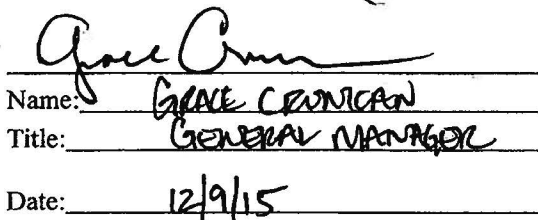 Grace Crun
Name: GRACE CRUNICAN
Title: GENERAL MANAGER
Date: 12/9/15